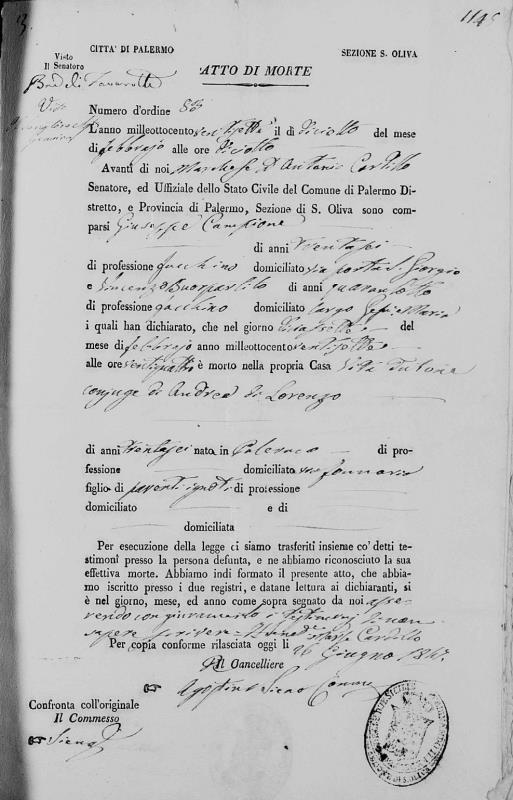 114
CITTA' DI PALERMO
SEZIONE S. OLIVA
Visto
Il Senatore
ATTO DI MORTE
Numero d'ordine
L'anno milleottocento ventisette il dì diciotto del mese
di febbrajo alle ore diciotto
Avanti di noi Marchese D. Antonio Cardillo
Senatore, ed Uffiziale dello Stato Civile del Comune di Palermo Di-
stretto, e Provincia di Palermo, Sezione di S. Oliva sono com-
parsi Giuseppe Campione
di anni trentasei
di professione facchino domiciliato via porta S. Giorgio
e Vincenzo di anni quarantotto
di professione facchino domiciliato largo Gesù e Maria
i quali han dichiarato, che nel giorno diciassette del
mese di febbrajo anno milleottocento ventisette
alle ore ventiquattro è morto nella propria Casa Vita
conjuge di Andrea di Lorenzo
di anni trentasei nata in Palermo di pro-
fessione domiciliato
figlio di parenti ignoti di professione
domiciliato e di
domiciliata
Per esecuzione della legge ci siamo trasferiti insieme co' detti te-
stimonî presso la persona defunta, e ne abbiamo riconosciuto la sua
effettiva morte. Abbiamo indi formato il presente atto, che abbia-
mo iscritto presso i due registri, e datane lettura ai dichiaranti, si
è nel giorno, mese, ed anno come sopra segnato da noi asse-
rendo con giuramento i testimonj di non
sapere scrivere Cardillo
Per copia conforme rilasciata oggi li 26 Giugno 1847
Il Cancelliere
Agostino Siena
Confronta coll'originale
Il Commesso
Siena